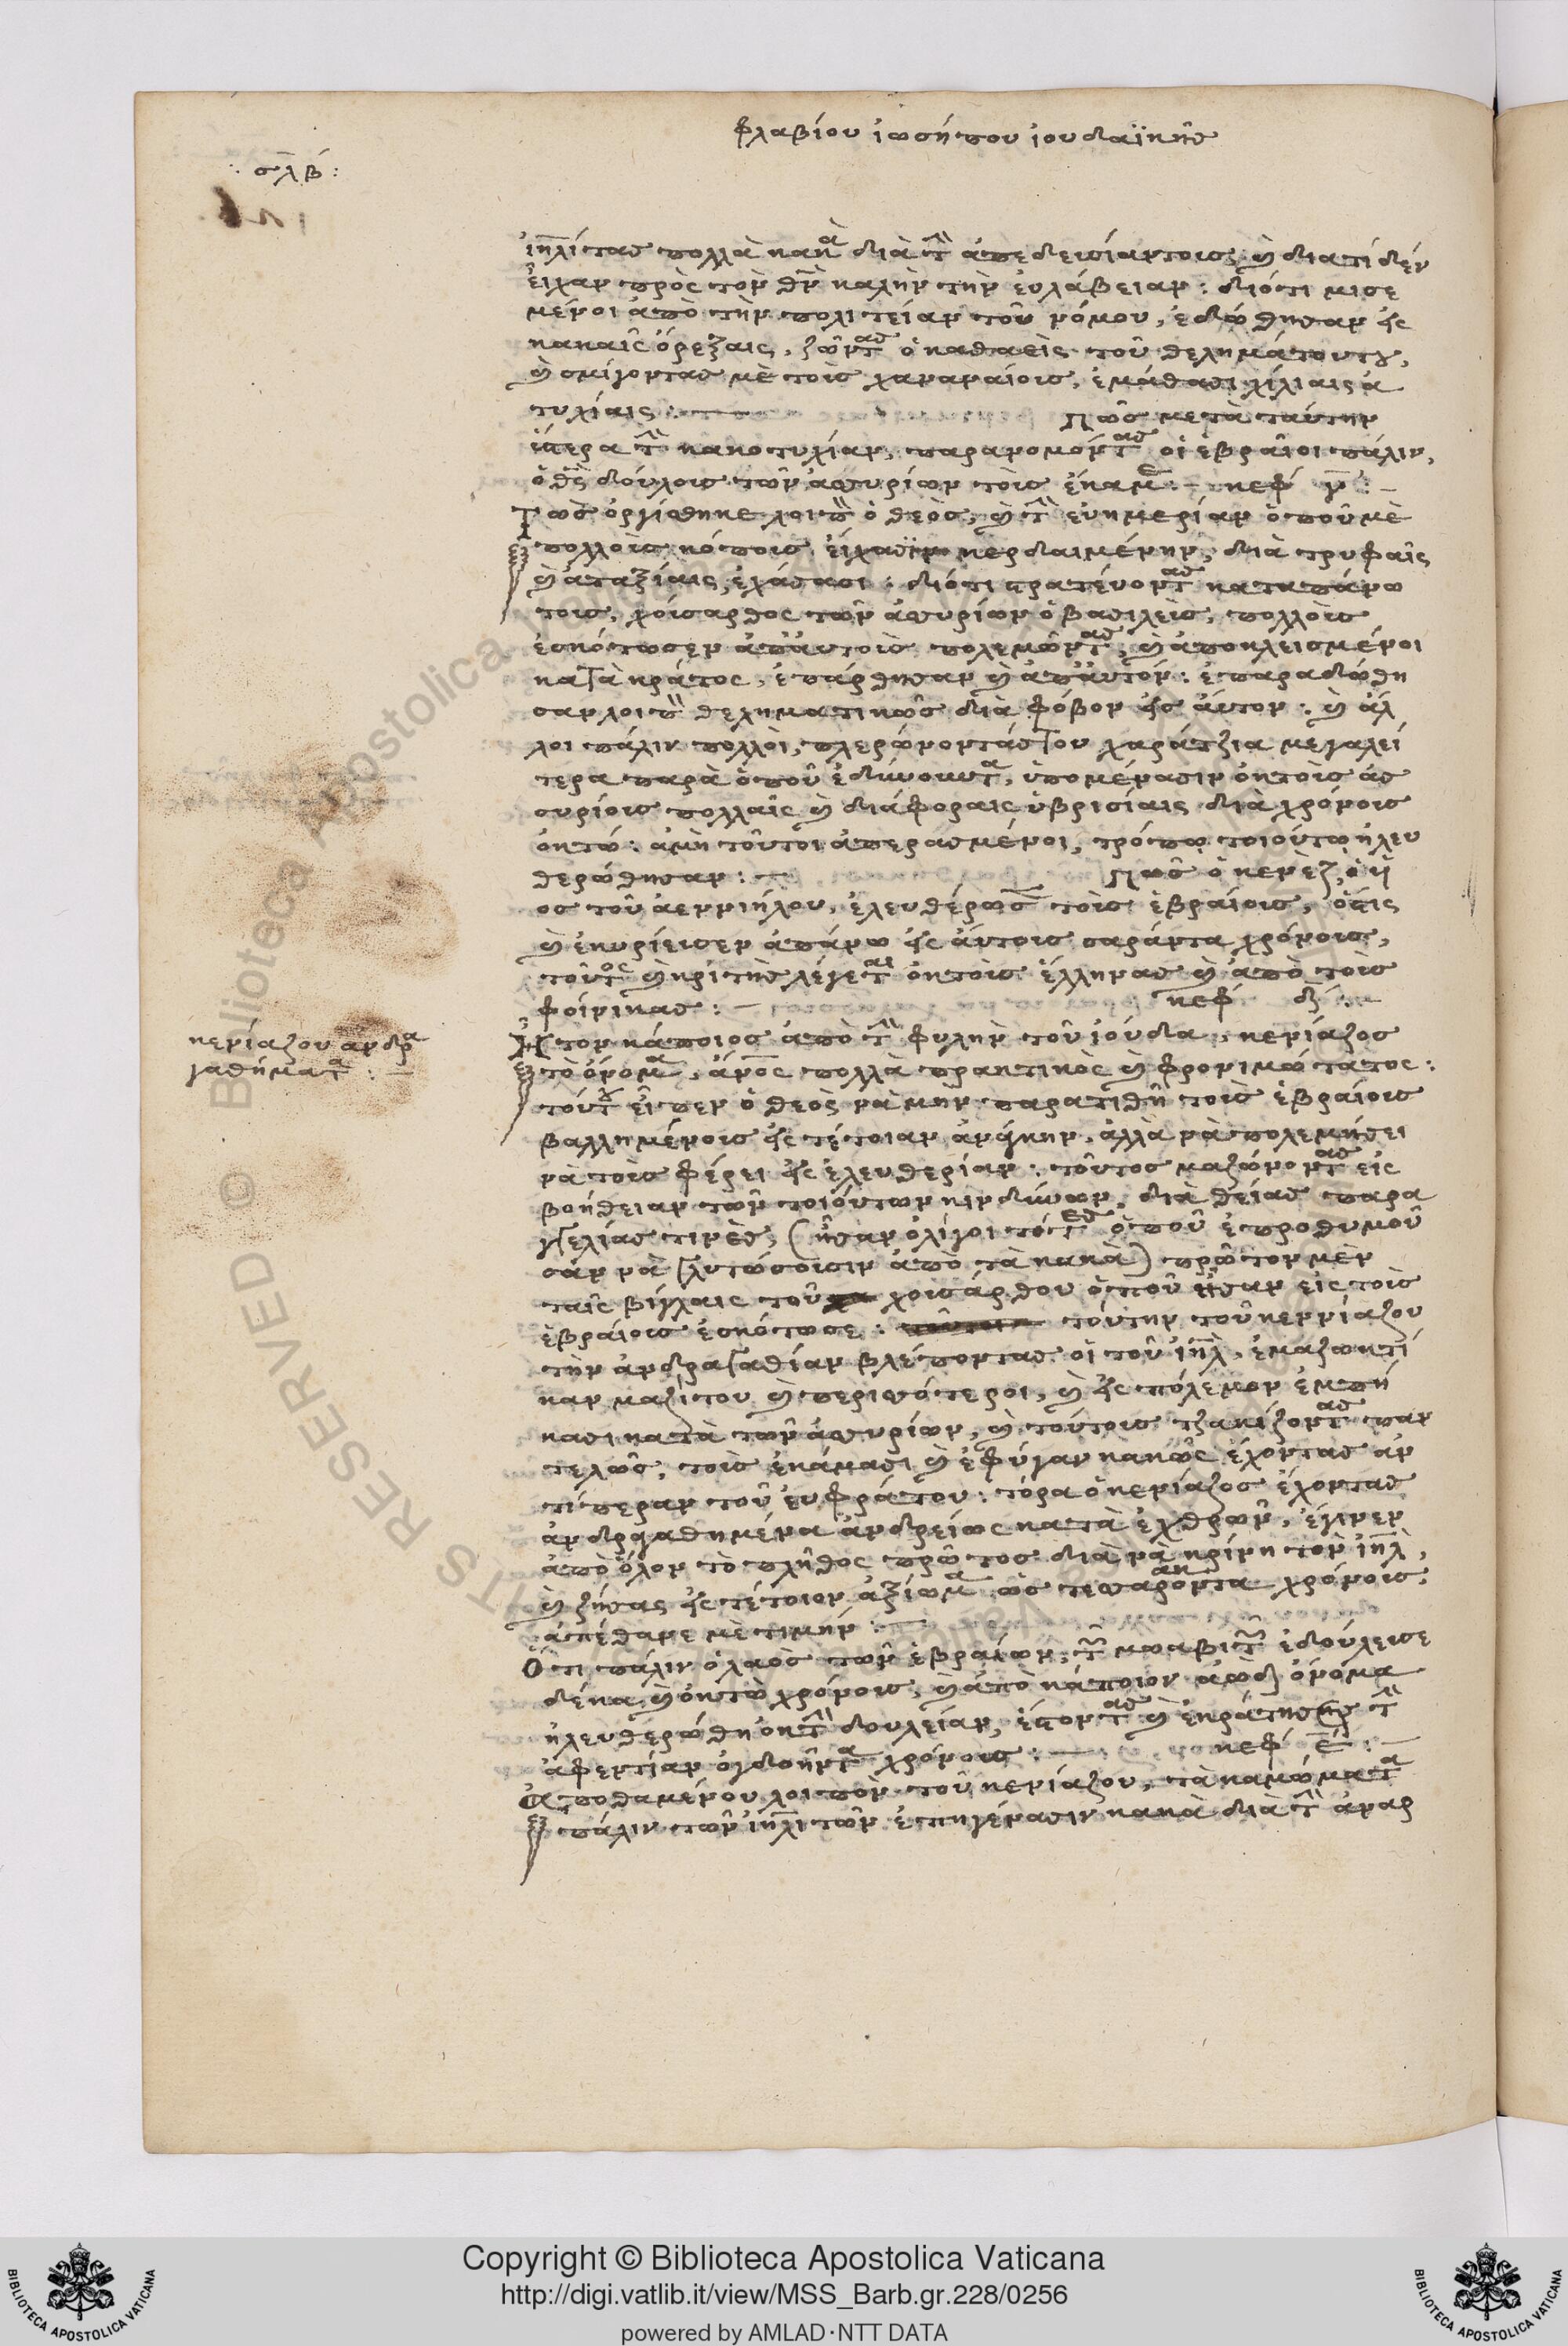 φλαβίου ἰωσήπου ἰουδαϊκῆς
: σλβ :
ἰηλίτας πολλὰ κακὰ διὰ τὴν ἀπεδεισίαν τους, καὶ διατὶ δὲν
εἶχαν πρὸς τὸν θν καλὴν τὴν εὐλάβειαν : διότι μισε
μένοι ἀπὸ τὴν πολιτείαν τοῦ νόμου, ἐδώθησαν εἰς
κακαῖς ὄρεξαις, ζῶντας ὁ καθαεὶς τοῦ θελημάτου του,
καὶ σμίγοντας μὲ τοὺς χαναναίους, ἐμάθασι χίλιαις ἀ
τυχίαις : Πῶς μετὰ ταύτην
ὕστερα τὴν κακοτυχίαν, παρανομόντας οἱ ἑβραῖοι πάλιν,
ὁ θς δούλους τῶν ἀσυρίων τοὺς ἔκαμε : κεφ γ :
Τῶς ὀργίσθηκε λοιπὸν ὁ θεὸς, καὶ τὴν εὐημερίαν ὁποῦ μὲ
πολλοὺς κόπους εἴχασιν κερδαιμένην, διὰ τρυφαῖς
καὶ ἀταξίαις ἐχάσασι : διότι στρατεύοντας καταπάνω
τους, χούσαρθος τῶν ἀσυρίων ὁ βασιλεὺς, πολλοὺς
ἐσκότωσεν ἀπ' αὐτοὺς πολεμῶντας, καὶ ἀποκλεισμένοι
κατὰ κράτος, ἐπάρθησαν καὶ ἀπ' αὐτόν : ἐπαραδώθη
σαν λοιπὸν θεληματικῶς διὰ φόβον εἰς αὐτον : καὶ ἄλ
λοι πάλιν πολλοὶ, πλερώνοντάς τον χαράτζια μεγαλεί
τερα παρὰ ὁποῦ ἐδύνουντα, ὑπομένασιν ἐκ τοὺς ἀσ
συρίους πολλαῖς καὶ διάφοραις ὑβρισίαις διὰ χρόνους
ὀκτώ : ἀμὴ τοῦτοι ἀπερασμένοι, τρόπῳ τοιούτῳ ἠλευ
θερώθησαν : Πῶς ὁ κενὲζ, ὁ ὑι
ὸς τοῦ ἀεννιήλου, ἐλευθέρωσε τοὺς ἑβραίους, ὅστις
καὶ ἐκυρίεισεν ἀπάνω εἰς αὐτους σαράντα χρόνους,
τοῦτος καὶ κριτὴς λέγεται ἐκ τοὺς ἕλληνας καὶ ἀπὸ τοὺς
φοίνικας : κεφ δ :
κενίαζου ανδρα
γαθήματα :
Ἦτον κάποιος ἀπὸ τὴν φυλὴν τοῦ ἰούδα, κενίαζος
τὸ ὄνομα, ἄνος πολλὰ πρακτικὸς καὶ φρονιμώτατος :
τοῦτον εἶπεν ὁ θεὸς νὰ μὴν παρατιθῆ τοὺς ἑβραίους
βαλλημένους εἰς τέτοιαν ἀνάγκην, ἀλλὰ νὰ πολεμήσει
νὰ τοὺς φέρει εἰς ἐλευθερίαν : τοῦτος μαζώνοντας εἰς
βοήθειαν τῶν τοιούτων κινδύνων, διὰ θείας παρα
γγελίας τινὲς, (ἦσαν ὀλίγοι τότες ὁποῦ ἐπροθυμοῦ
σαν νὰ γλυτώσουσιν ἀπὸ τὰ κακὰ) πρῶτον μὲν
ταῖς βίγλαις τοῦ χουσάρθου ὁποῦ ἦσαν εἰς τοὺς
ἑβραίους ἐσκότωσε : τούτην τοῦ κεννίαζου
τὴν ἀνδραγαθίαν βλέποντας οἱ τοῦ ἰηλ, ἐμαζωκτί
καν μαζί του καὶ περισότεροι, καὶ εἰς πόλεμον ἐμπή
κασι κατὰ τῶν ἀσυρίων, καὶ τούτους τζακίζοντας παν
τελῶς, τοὺς ἐκάμασι καὶ ἐφύγαν κακῶς ἔχοντας ἀν
τίπεραν τοῦ ἐυφράτου : τόρα ὁ κενίαζος ἔχοντας
ἀνδραγαθημένα ἀνδρείως κατὰ ἐχθρῶν, ἔγινεν
ἀπὸ ὅλον τὸ πλῆθος πρῶτος διὰ νὰ κρίνη τὸν ἰηλ,
καὶ ζήσας εἰς τέτοιον ἀξίωμα ὡς τεσαράκοντα χρόνους,
ἀπέθανε μὲ τιμήν :
Ὅτι πάλιν ὁ λαὸς τῶν ἑβραίων, τῶν μωαβιτῶν ἐδούλεισε
δέκα καὶ ὀκτὼ χρόνους, καὶ ἀπὸ κάποιον ἀωδ ὀνόμα
ἠλευθερώθη ἐκ τὴν δουλείαν, ὅστις καὶ ἐκράτησεν τὴν
ἀφεντίαν ὀγδοῆντα χρόνους : κεφ ε :
Ἀποθαμένου λοιπὸν τοῦ κενίαζου, τὰ καμώματα
πάλιν τῶν ἰηλιτῶν ἐπηγένασιν κακὰ διὰ τὴν ἀναρ
Copyright © Biblioteca Apostolica Vaticana
http://digi.vatlib.it/view/MSS_Barb.gr.228/0256
powered by AMLAD·NTT DATA